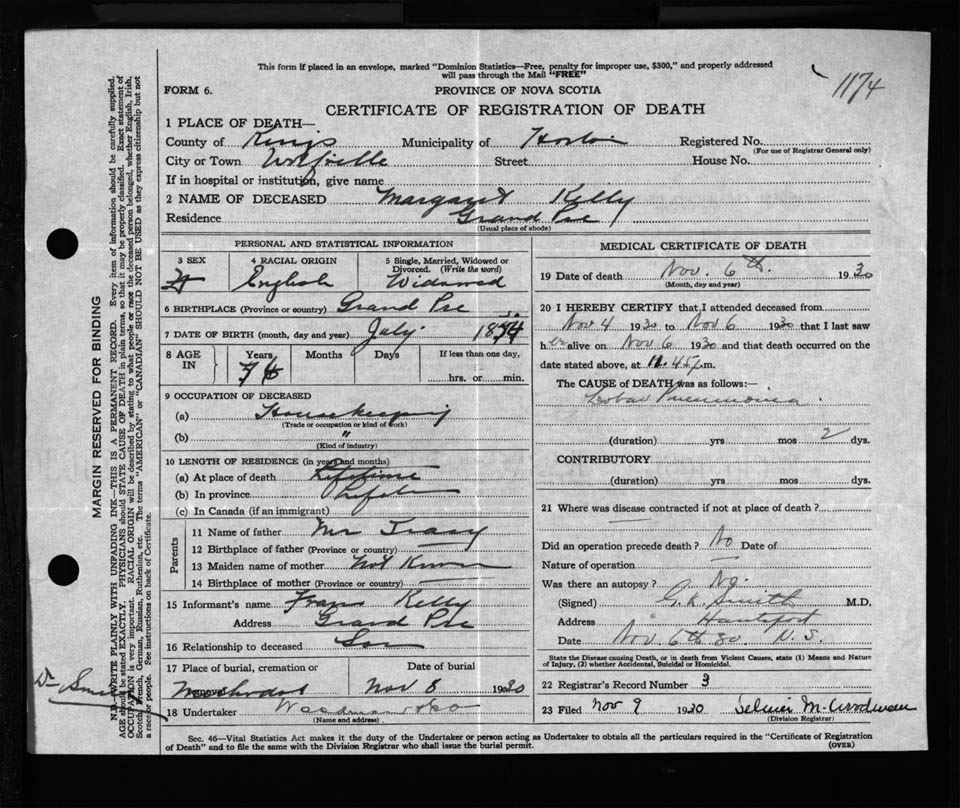 This form if placed in an envelope, marked "Dominion Statistics—Free, penalty for improper use, $300," and properly addressed
will pass through the Mail "FREE"
1174
FORM 6. PROVINCE OF NOVA SCOTIA
CERTIFICATE OF REGISTRATION OF DEATH
1 PLACE OF DEATH—
County of Kings Municipality of Horton Registered No.
(For use of Registrar General only)
City or Town Wolfville Street House No.
If in hospital or institution, give name
2 NAME OF DECEASED Margaret Kelly
Residence Grand Pre
(Usual place of abode)
PERSONAL AND STATISTICAL INFORMATION
3 SEX 4 RACIAL ORIGIN 5 Single, Married, Widowed or
Divorced. (Write the word)
F English Widowed
6 BIRTHPLACE (Province or country) Grand Pre
7 DATE OF BIRTH (month, day and year) July
8 AGE IN Years Months Days If less than one day,
hrs. or min.
9 OCCUPATION OF DECEASED
(a) Housekeeping
(Trade or occupation or kind of work)
(b) "
(Kind of industry)
10 LENGTH OF RESIDENCE (in years and months)
(a) At place of death Lifetime
(b) In province
(c) In Canada (if an immigrant)
Parents
11 Name of father Mr Tracy
12 Birthplace of father (Province or country) —
13 Maiden name of mother Not Known
14 Birthplace of mother (Province or country) —
15 Informant's name Kelly
Address Grand Pre
16 Relationship to deceased Son
17 Place of burial, cremation or removal Date of burial
Nov 8 1930
18 Undertaker Woodman & Co
(Name and address)
MEDICAL CERTIFICATE OF DEATH
19 Date of death Nov. 6th. 1930
(Month, day and year)
20 I HEREBY CERTIFY that I attended deceased from
Nov 4 1930 to Nov 6 1930 that I last saw
her alive on Nov 6 1930 and that death occurred on the
date stated above, at 11.45 .m.
The CAUSE of DEATH was as follows:
Lobar Pneumonia
(duration) yrs mos 2 dys.
CONTRIBUTORY
(duration) yrs mos dys.
21 Where was disease contracted if not at place of death?
—
Did an operation precede death? No Date of
Nature of operation —
Was there an autopsy? No.
(Signed) G.K. Smith M.D.
Address Hantsport
Date Nov 6th 30 N.S.
State the Disease causing Death, or in death from Violent Causes, state (1) Means and Nature
of Injury, (2) whether Accidental, Suicidal or Homicidal.
22 Registrar's Record Number 3
23 Filed Nov 9 1930
(Division Registrar)
Sec. 46—Vital Statistics Act makes it the duty of the Undertaker or person acting as Undertaker to obtain all the particulars required in the "Certificate of Registration
of Death" and to file the same with the Division Registrar who shall issue the burial permit. (OVER)
MARGIN RESERVED FOR BINDING
N.B.—WRITE PLAINLY WITH UNFADING INK—THIS IS A PERMANENT RECORD. Every item of information should be carefully supplied.
AGE should be stated EXACTLY. PHYSICIANS should STATE CAUSE OF DEATH in plain terms, so that it may be properly classified. Exact statement of
OCCUPATION is very important. RACIAL ORIGIN will be described by stating to what people or race the deceased person belonged, whether English, Irish,
Scotch, French, German, Russian, Ruthenian, etc. The terms "AMERICAN" or "CANADIAN" SHOULD NOT BE USED as they express citizenship but not
a race or people. See instructions on back of Certificate.
Dr Smith